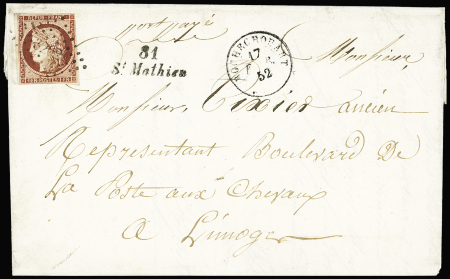 REPUB. FRANC.
port payé
81
St Mathieu
ROCHECHOUART
17
52
Monsieur
Monsieur, Tixier ancien
Representant Boulevard De
La Poste aux Chevaux
a Limoges